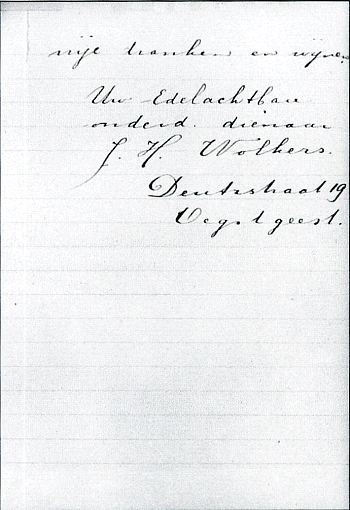 vrije dranken en wijnen
Uw Edelachtbare
onderd. dienaar
J. H. Wolkers.
Deutzstraat 19
Oegstgeest.